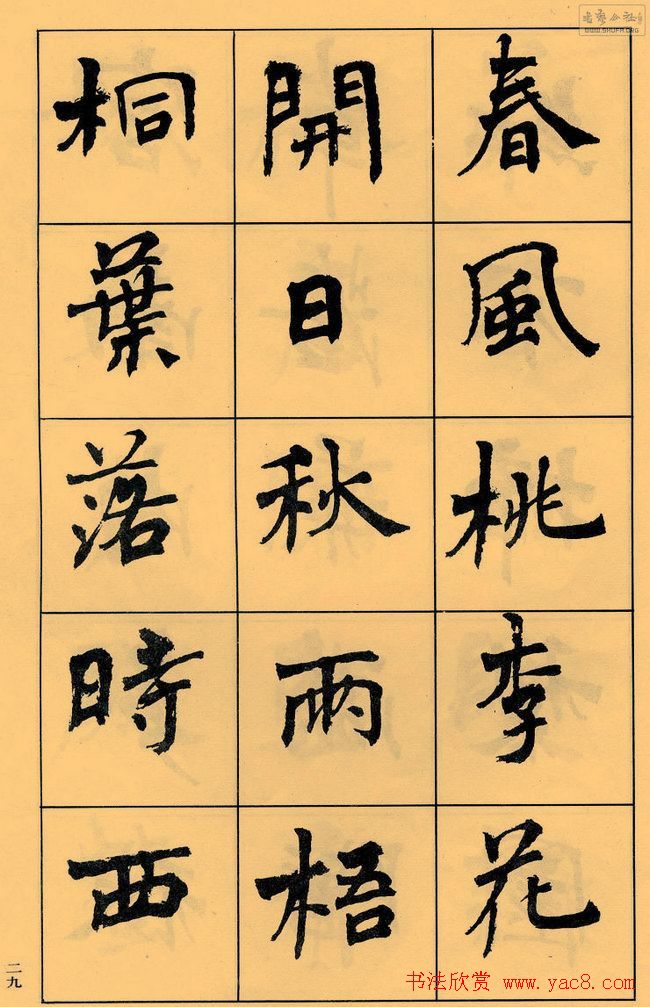 春風桃李花
開日秋雨梧
桐葉落時西
二九
书法欣赏 www.yac8.com
WWW.SHUFA.ORG